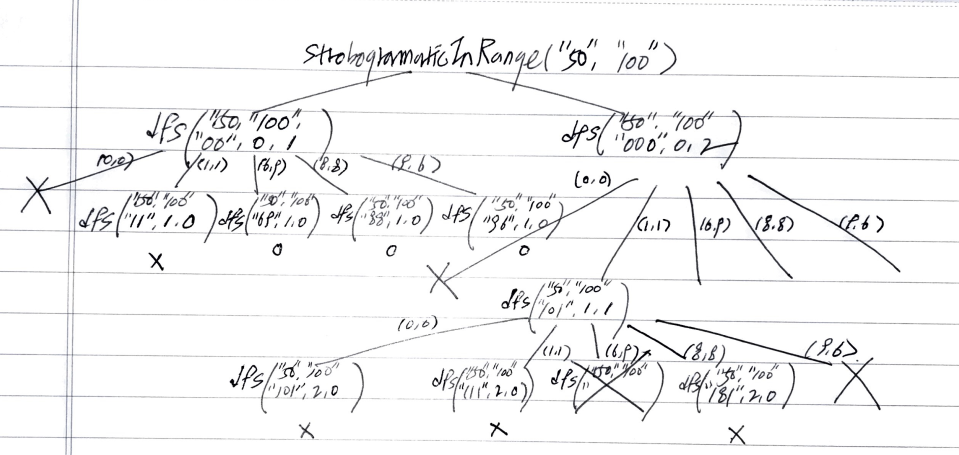 StrobogrammaticInRange("50", "100")
dfs("50", "100",
"00", 0, 1)
dfs("50", "100"
"000", 0, 2)
(0,0)
(1,1)
(6,9)
(8,8)
(9,6)
(0,0)
(1,1)
(6,9)
(8,8)
(9,6)
X
dfs("50", "100"
"11", 1, 0)
dfs("50", "100"
"69", 1, 0)
dfs("50", "100"
"88", 1, 0)
dfs("50", "100"
"96", 1, 0)
X
0
0
0
X
dfs("50", "100"
"101", 1, 1)
(0,0)
(1,1)
(6,9)
(8,8)
(9,6)
dfs("50", "100"
"101", 2, 0)
dfs("50", "100"
"111", 2, 0)
dfs("50", "100"
"
dfs("50", "100"
"181", 2, 0)
X
X
X
X